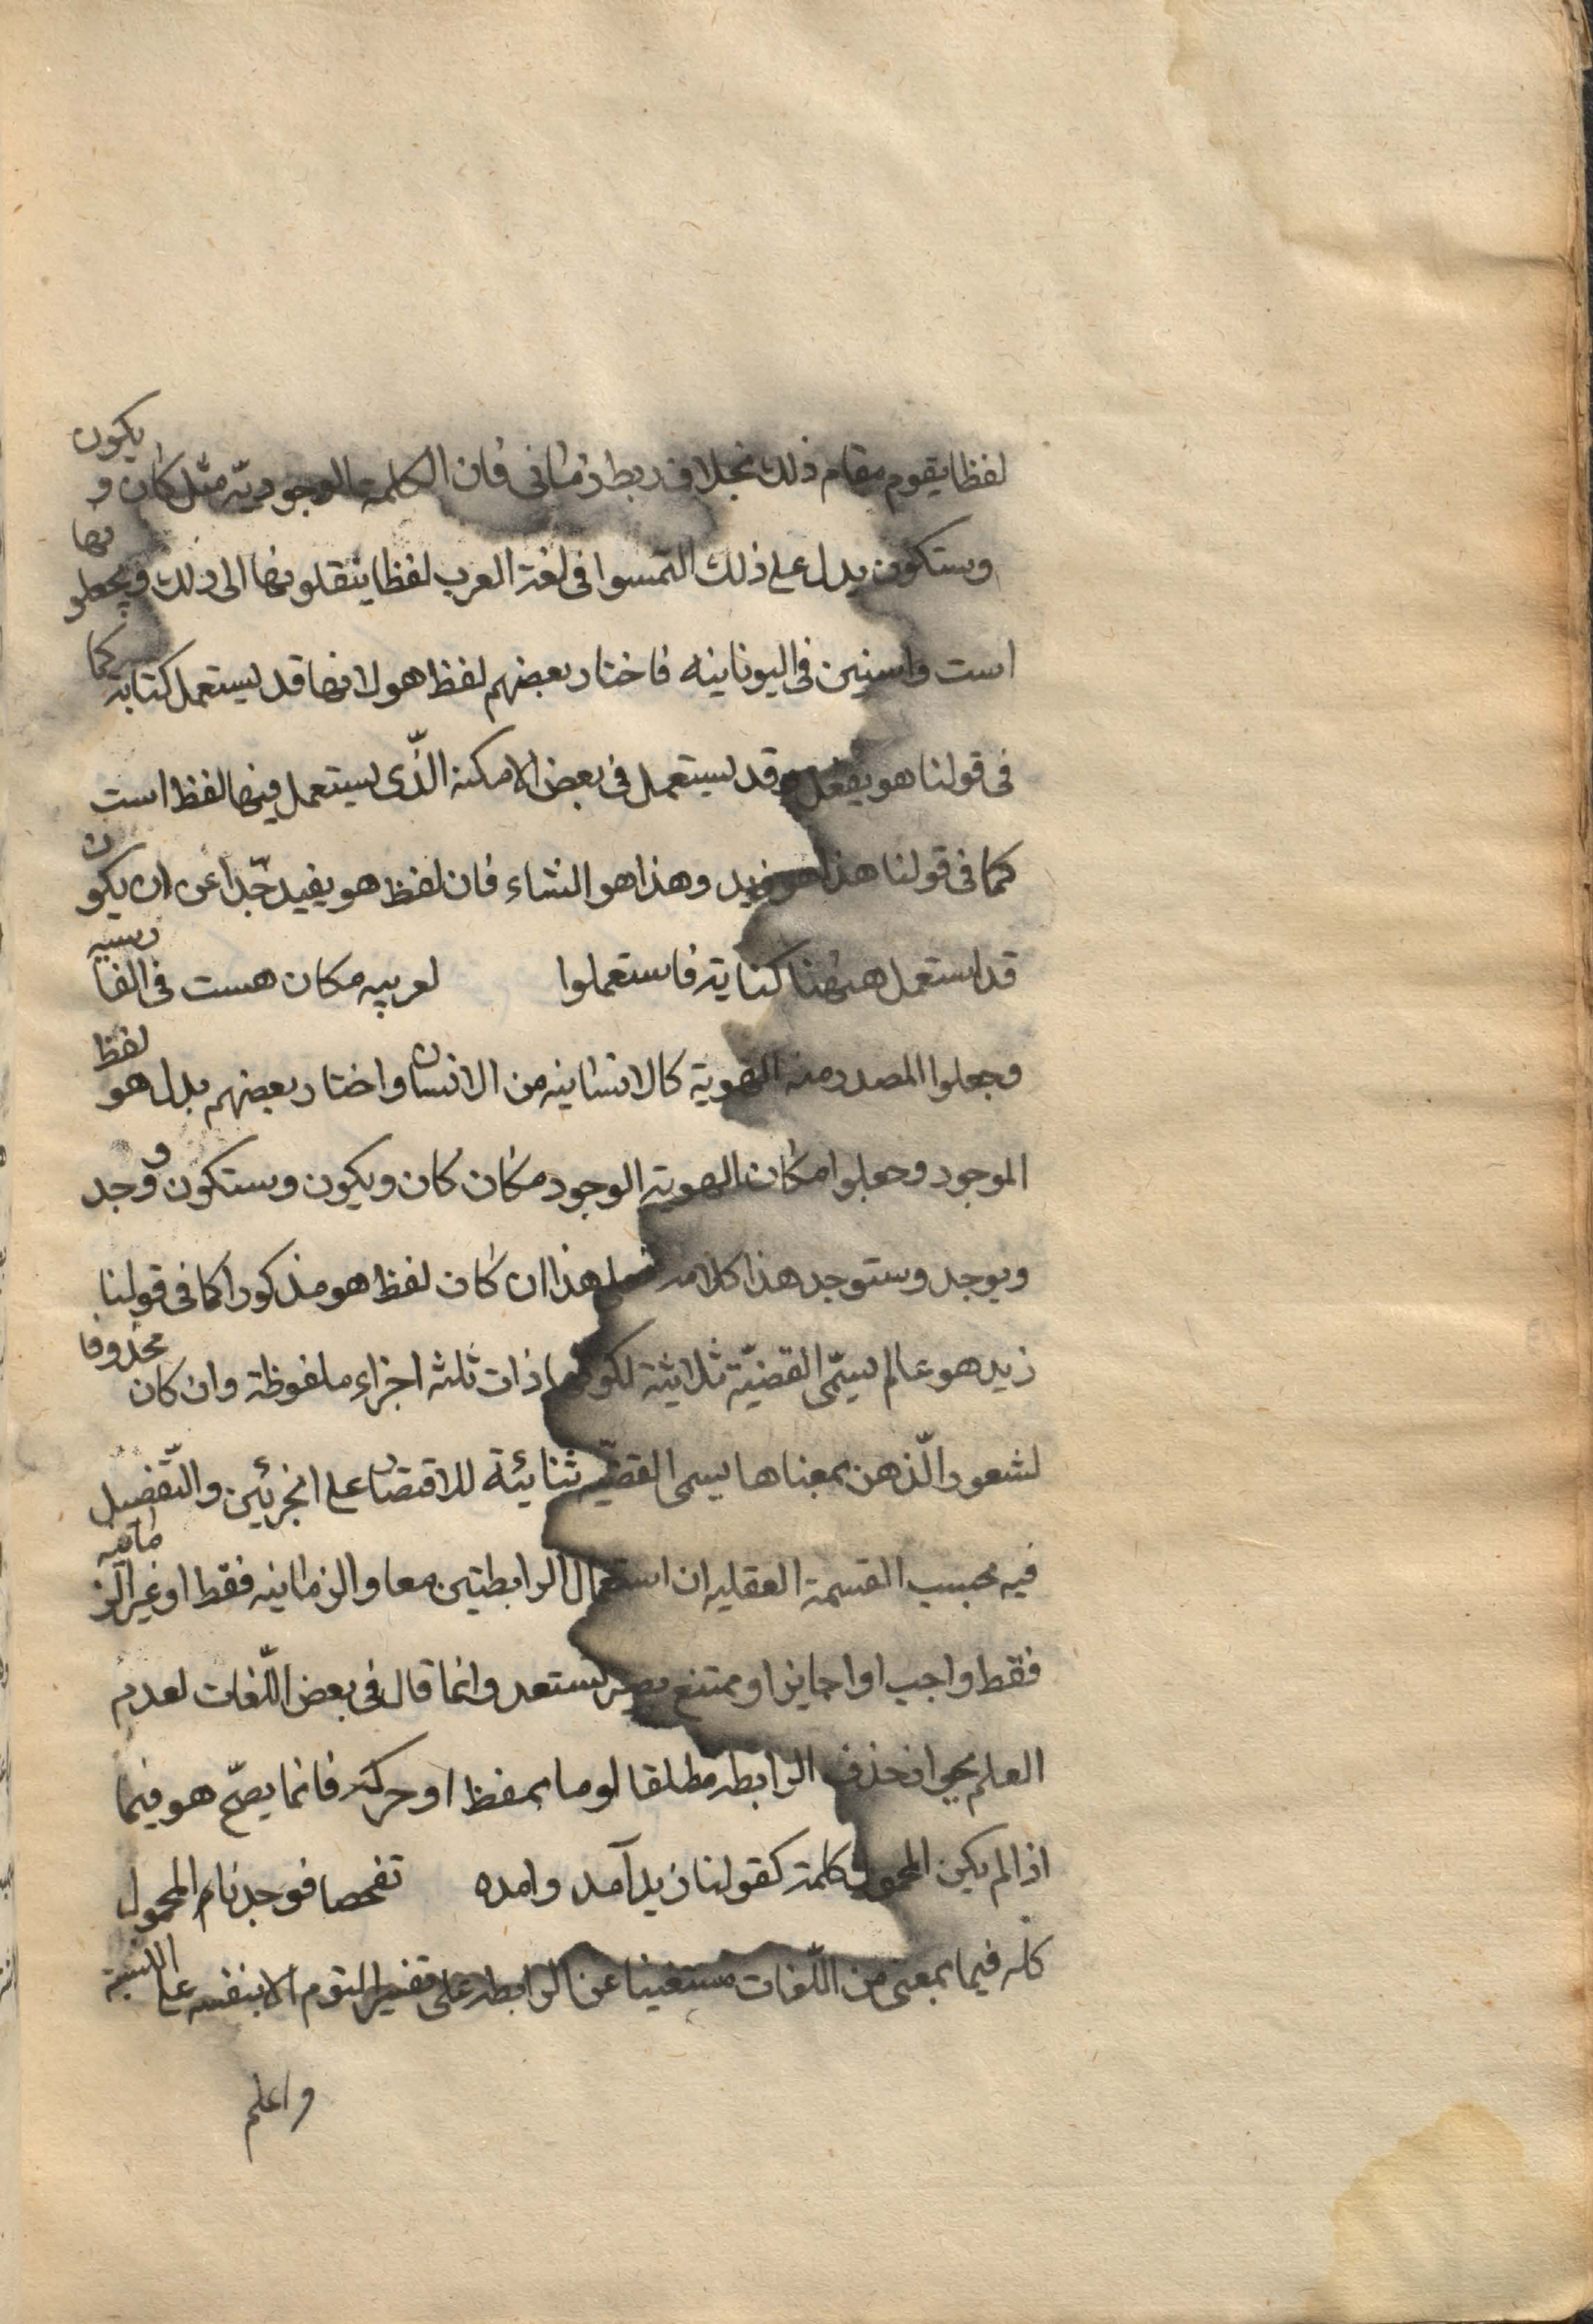 لفظا يقوم مقام ذلك بخلاف ربط زمانى فان الكلمة الوجوديّه مثل كان و يكون
وستكون يدل على ذلك التمسوا فى لغة العرب لفظا ينقلونها الى ذلك ويجعلو نها
است واستين فى اليونانيه فاختار بعضهم لفظ هو لانها قد يستعمل كتابة كما
فى قولنا هو يفعل وقد يستعمل فى بعض الامكنة الّذى يستعمل فيها لفظ است
كما فى قولنا هذا هو زيد وهذا هو الشاء فان لفظ هو يفيد جّدا عن ان يكون
قد استعمل هيهنا كناية فاستعملوا لعربيه مكان هست فى الفا رسيه
وجعلوا المصدر منه الهوية كالانسانيه من الانسان واختار بعضهم بدل هو لفظ
الموجود وجعلوا مكان الهوية الوجود مكان كان ويكون وستكون و وجد
ويوجد وستوجد هذا كلامه فعلى هذا ان كان لفظ هو مذكورا كما فى قولنا
زيد هو عالم يسمّى القضيّة ثلاثية لكونها ذات ثلثه اجزاء ملفوظة وان كان محذوفا
لشعور الّذهن بمعناها يسمى القضيّه ثنائية للاقتصار على الجزئين والتّفصيل
فيه بحسب القسمة العقليه ان استعمال الرابطتين معا والزمانيه فقط او غير الز مانيه
فقط واجب او جايز او ممتنع وانما قال فى بعض اللّغات لعدم
العلم بجواز حذف الرابطه مطلقا او حركه فانما يصحّ هو فيما
اذا لم يكن المحمول كلمة كقولنا زيد آمد وامده تفحصا فوجدنا م المحمول
كله فيما بمعنى من اللّغات مستغنيا عن الرابطه على القوم الا بنفسه على النسبة
واعلم